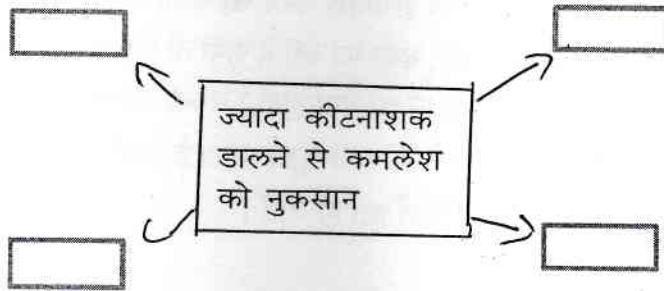 ज्यादा कीटनाशक
डालने से कमलेश
को नुकसान